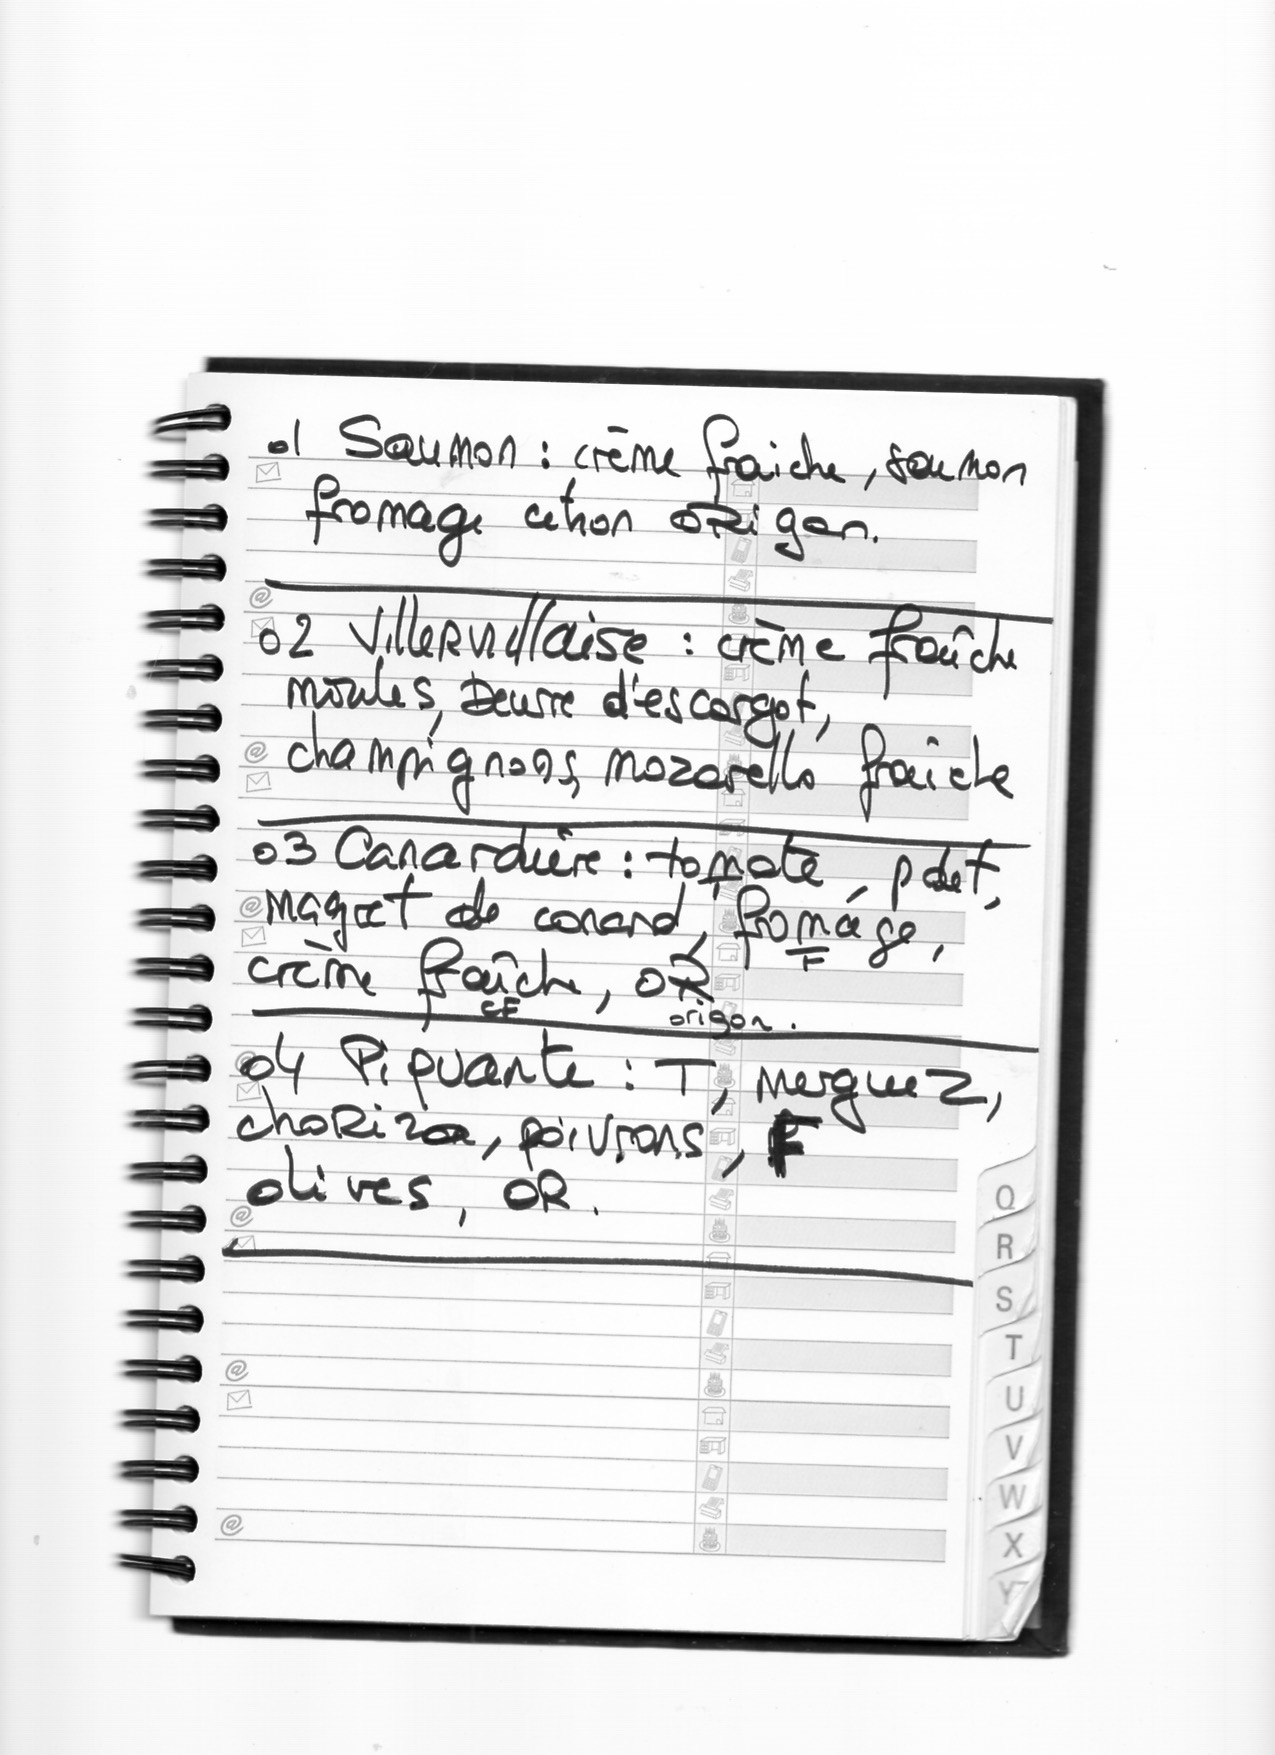 01 Saumon : crème fraiche, saumon
fromage citron ORigan.
02 Villervillaise : crème fraîche
moules, beurre d'escargot,
champignons, mozarella fraîche
03 Canardière : tomate, pdet,
magret de canard, fromage,
F
crème fraîche, OR
CF origan.
04 Piquante : T, merguez,
choRizo, poivrons, F
olives, OR.
Q
R
S
T
U
V
W
X
Y